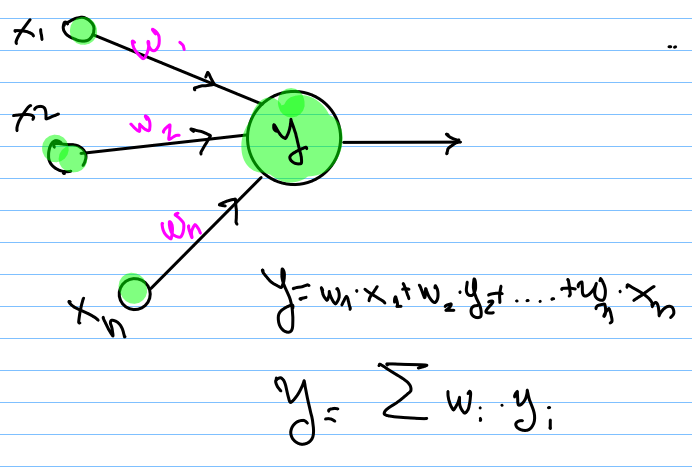 x1
w1
x2
w2
y
wn
xn
y = w1·x1 + w2·y2 + .... + wn·xn
y = Σ wi·yi